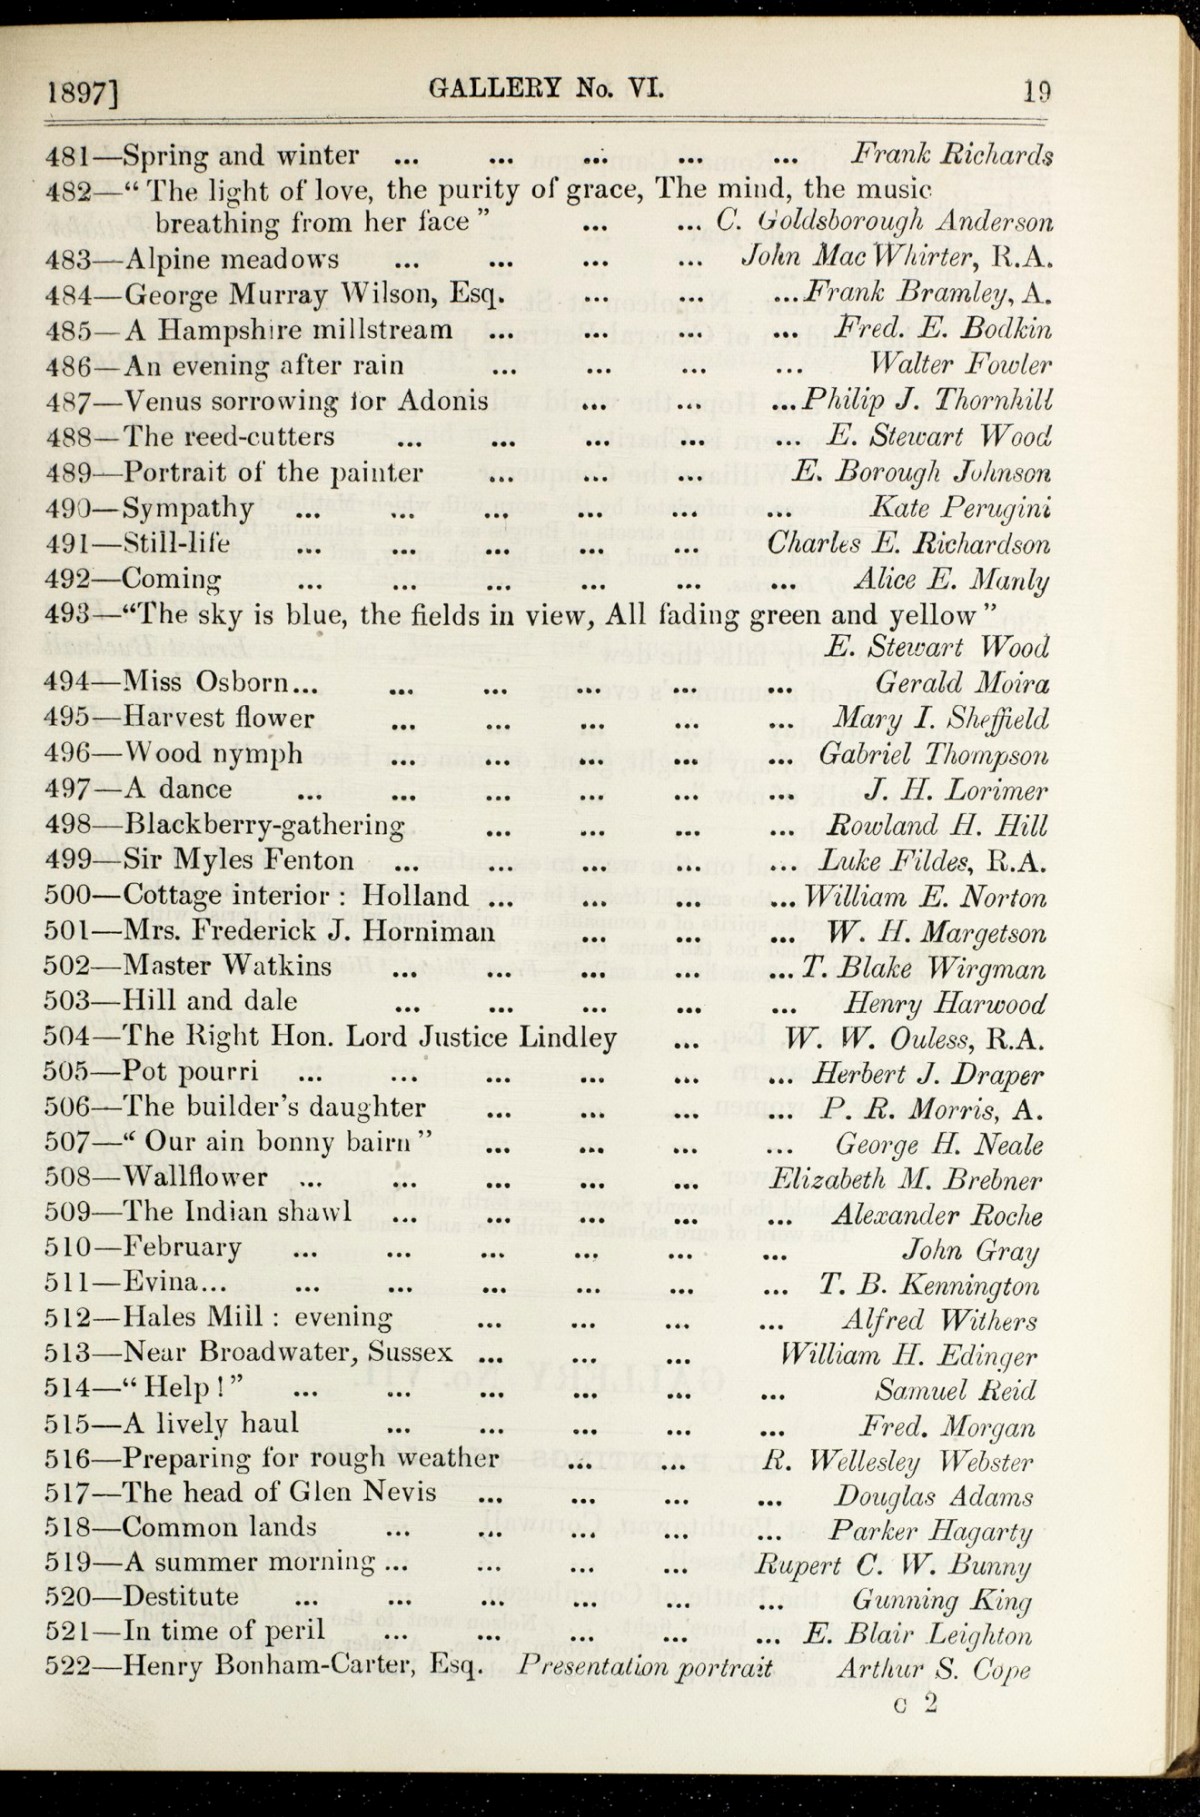 1897] GALLERY No. VI. 19
481—Spring and winter ... ... ... ... ... Frank Richards
482—“ The light of love, the purity of grace, The mind, the music
breathing from her face ” ... ... C. Goldsborough Anderson
483—Alpine meadows ... ... ... ... John MacWhirter, R.A.
484—George Murray Wilson, Esq. ... ... ...Frank Bramley, A.
485—A Hampshire millstream ... ... ... ... Fred. E. Bodkin
486—An evening after rain ... ... ... ... Walter Fowler
487—Venus sorrowing for Adonis ... ... ...Philip J. Thornhill
488—The reed-cutters ... ... ... ... ... E. Stewart Wood
489—Portrait of the painter ... ... ... E. Borough Johnson
490—Sympathy ... ... ... ... ... Kate Perugini
491—Still-life ... ... ... ... ... Charles E. Richardson
492—Coming ... ... ... ... ... ... Alice E. Manly
493—“The sky is blue, the fields in view, All fading green and yellow ”
E. Stewart Wood
494—Miss Osborn... ... ... ... ... ... Gerald Moira
495—Harvest flower ... ... ... ... ... Mary I. Sheffield
496—Wood nymph ... ... ... ... ... Gabriel Thompson
497—A dance ... ... ... ... ... ... J. H. Lorimer
498—Blackberry-gathering ... ... ... ... Rowland H. Hill
499—Sir Myles Fenton ... ... ... ... ... Luke Fildes, R.A.
500—Cottage interior : Holland ... ... ... ...William E. Norton
501—Mrs. Frederick J. Horniman ... ... ... W. H. Margetson
502—Master Watkins ... ... ... ... ...T. Blake Wirgman
503—Hill and dale ... ... ... ... ... Henry Harwood
504—The Right Hon. Lord Justice Lindley ... W. W. Ouless, R.A.
505—Pot pourri ... ... ... ... ... ... Herbert J. Draper
506—The builder’s daughter ... ... ... ... P. R. Morris, A.
507—“ Our ain bonny bairn ” ... ... ... ... George H. Neale
508—Wallflower ... ... ... ... ... Elizabeth M. Brebner
509—The Indian shawl ... ... ... ... ... Alexander Roche
510—February ... ... ... ... ... ... John Gray
511—Evina... ... ... ... ... ... ... T. B. Kennington
512—Hales Mill : evening ... ... ... ... Alfred Withers
513—Near Broadwater, Sussex ... ... ... William H. Edinger
514—“ Help ! ” ... ... ... ... ... ... Samuel Reid
515—A lively haul ... ... ... ... ... Fred. Morgan
516—Preparing for rough weather ... ... R. Wellesley Webster
517—The head of Glen Nevis ... ... ... ... Douglas Adams
518—Common lands ... ... ... ... ... Parker Hagarty
519—A summer morning ... ... ... ... Rupert C. W. Bunny
520—Destitute ... ... ... ... ... ... Gunning King
521—In time of peril ... ... ... ... ... E. Blair Leighton
522—Henry Bonham-Carter, Esq. Presentation portrait Arthur S. Cope
C 2